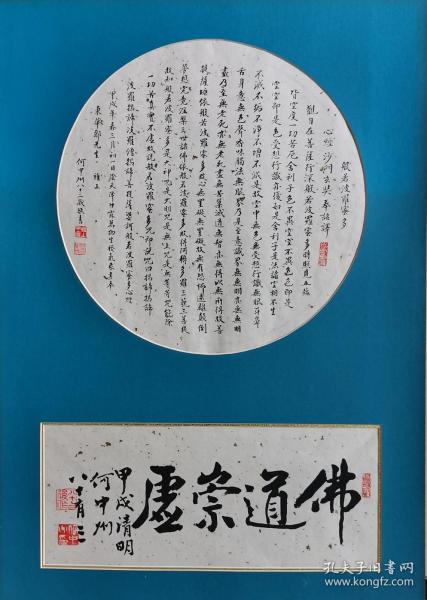 般若波羅蜜多
心經 沙門玄奘奉詔譯
觀自在菩薩行深般若波羅蜜多時照見五蘊
皆空度一切苦厄舍利子色不異空空不異色色即是
空空即是色受想行識亦復如是舍利子是諸法空相不生
不滅不垢不淨不增不減是故空中無色無受想行識無眼耳鼻
舌身意無色聲香味觸法無眼界乃至無意識界無無明亦無無明
盡乃至無老死亦無老死盡無苦集滅道無智亦無得以無所得故菩
提薩埵依般若波羅蜜多故心無罣礙無罣礙故無有恐怖遠離顛倒
夢想究竟涅槃三世諸佛依般若波羅蜜多故得阿耨多羅三藐三菩提
故知般若波羅蜜多是大神咒是大明咒是無上咒是無等等咒能除
一切苦真實不虛故說般若波羅蜜多咒即說咒曰揭諦揭諦
波羅揭諦波羅僧揭諦菩提薩婆訶般若波羅蜜多心經
甲戌年春三月
何中州八十二歲敬書
佛道崇虛
甲戌清明
何中州
八十有二
孔夫子旧书网
www.kongfz.com